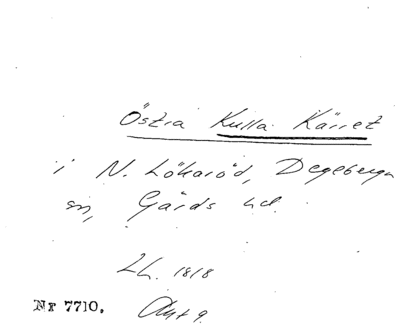 Östra Kulla Kärret
i N. Lökaröd, Degeberga
sn, Gärds hd.
LH. 1818
Nr 7710. Akt 9.